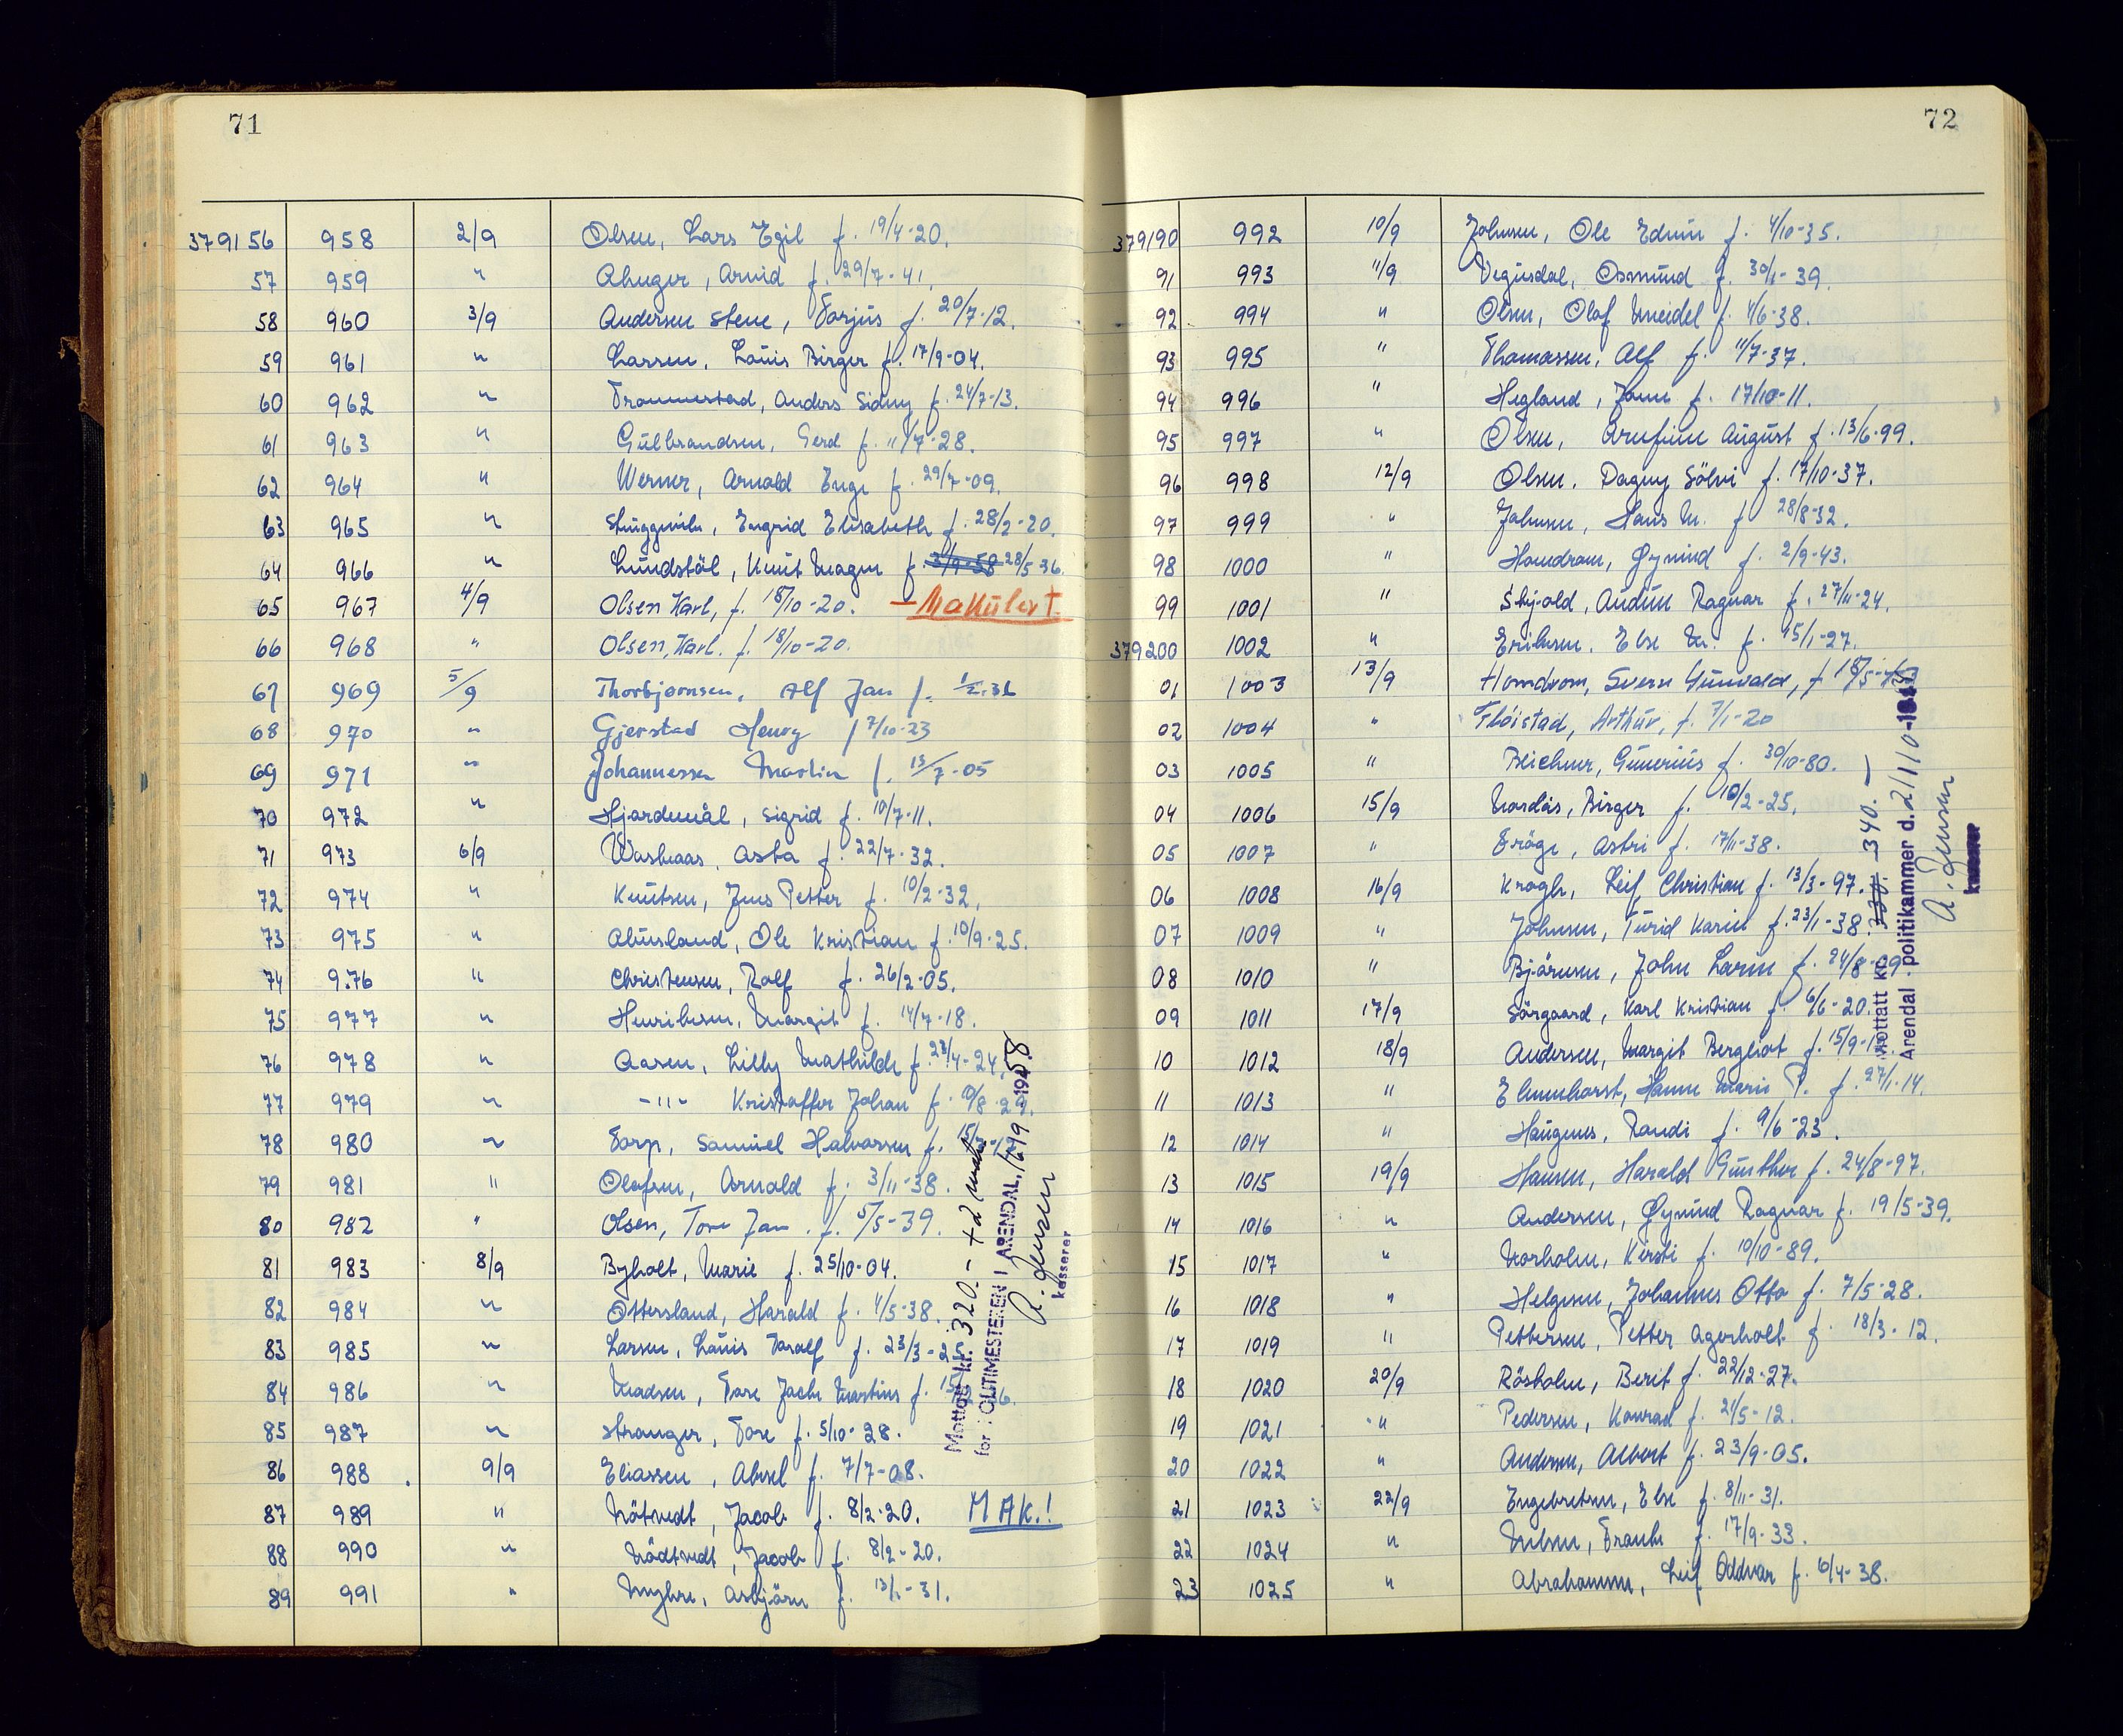 71
379156 958 2/9 Olsen, Lars Egil f. 19/4-20.
57 959 " Arvid f. 29/7-41.
58 960 3/9 Andersen Stene, Torjus f. 20/7-12.
59 961 " Larsen, Louis Birger f. 17/9-04.
60 962 " Trommestad, Anders Sidny f. 24/7-13.
61 963 " Gulbrandsen, Gerd f. 11/7-28.
62 964 " Werner, Arnold Inge f. 29/7-09.
63 965 " Ingrid Elisabeth f. 28/2-20.
64 966 " Lundstöl, Knut Magne f. 3/9-58 28/5 36.
65 967 4/9 Olsen Karl, f. 18/10-20. - Makulert
66 968 " Olsen, Karl. f. 18/10-20.
67 969 5/9 Thorbjørnsen, Alf Jan f. 1/2.31
68 970 " Gjerstad Henry f 7/10-23
69 971 " Johannessen Martin f. 13/7-05
70 972 " Hjardemål, Sigrid f. 10/7-11.
71 973 6/9 Washaas, Asta f. 22/7-32.
72 974 " Knutsen, Jens Petter f. 10/2-32.
73 975 " Ole Kristian f. 10/9-25.
74 9.76 " Christensen, Rolf f. 26/2-05.
75 977 " Henriksen, Margit f. 14/7-18.
76 978 " Aasen, Lilly Mathilde f. 23/4-24.
77 979 " -"- Kristoffer Johan f.
78 980 " Torp, Samuel Halvorsen f.
79 981 " Olafsen, Arnold f. 3/11-38.
80 982 " Olsen, Tore Jan. f. 5/5-39.
81 983 8/9 Byholt, Marie f. 25/10-04.
82 984 " Ottersland, Harald f. 4/5-38.
83 985 " Larsen, Louis Torolf f. 23/3-25
84 986 " Madsen, Tore Jacob Martins f.
85 987 " Stranger, Tore f. 5/10-28.
86 988 . 9/9 Eliassen, Aksel f. 7/7-08.
87 989 " Nötvedt, Jacob f. 8/2-20. MAK.!
88 990 " Nödtvedt, Jacob f. 8/2-20.
89 991 " Myhre, Asbjörn f. 13/1-31.
Mottatt kr. 320.-
for POLITIMESTEREN I ARENDAL, 16/9 1958
A. Jensen
kasserer
72
379190 992 10/9 Johnsen, Ole Edvin f. 4/10-35.
91 993 11/9 Vegusdal, Osmund f. 30/1-39.
92 994 " Olsen, Olaf Meidel f. 4/6-38.
93 995 " Thomassen, Alf f. 11/7-37.
94 996 " Hegland, f. 17/10-11.
95 997 " Olsen, Arnfinn August f. 13/6-99.
96 998 12/9 Olsen, Dagny Sölvi f. 17/10-37.
97 999 " Johnsen, Hans M. f 28/8-32.
98 1000 " Homdrom, Øyvind f. 2/9-43.
99 1001 " Audun Ragnar f. 27/11-24.
379200 1002 " Eriksen, Else M. f. 15/1-27.
01 1003 13/9 Homdrom, Svern Gunvald, f 18/5-
02 1004 " Flöistad, Arthur, f. 7/1-20
03 1005 " Beichner, Gunerius f. 30/10-80.
04 1006 15/9 Nordås, Birger f. 10/2-25.
05 1007 " Tröge, Astri f. 17/11-38.
06 1008 16/9 Krogh, Leif Christian f. 13/3-97.
07 1009 " Johnsen, Turid Karin f. 23/1-38.
08 1010 " Bjørnsen, John Larin f. 24/8-09.
09 1011 17/9 Sörgaard, Karl Kristian f. 6/6-20.
10 1012 18/9 Andersen, Margit Bergliot f. 15/9-
11 1013 " Hanne Marie P. f. 27/1-14.
12 1014 " Haugenes, Randi f. 9/6-23.
13 1015 19/9 Hansen, Harald Günther f. 24/8-97.
14 1016 " Andersen, Øyvind Ragnar f. 19/5-39.
15 1017 " Norholm, Kirsti f. 10/10-89.
16 1018 " Helgesen, Johannes Otto f. 7/5-28.
17 1019 " Pettersen, Petter Agerholt f. 18/3-12.
18 1020 20/9 Rösholm, Berit f. 22/12-27.
19 1021 " Pedersen, Konrad f. 21/5-12.
20 1022 " Andersen, Albert f. 23/9-05.
21 1023 22/9 Engebretsen, Else f. 8/11-31.
22 1024 " Nilsen, Frank f. 17/9-33.
23 1025 " Abrahamsen, Leif Oddvar f. 6/4-38.
Mottatt kr. 330.- 340.-
Arendal politikammer d. 2/10-19
A. Jensen
kasserer